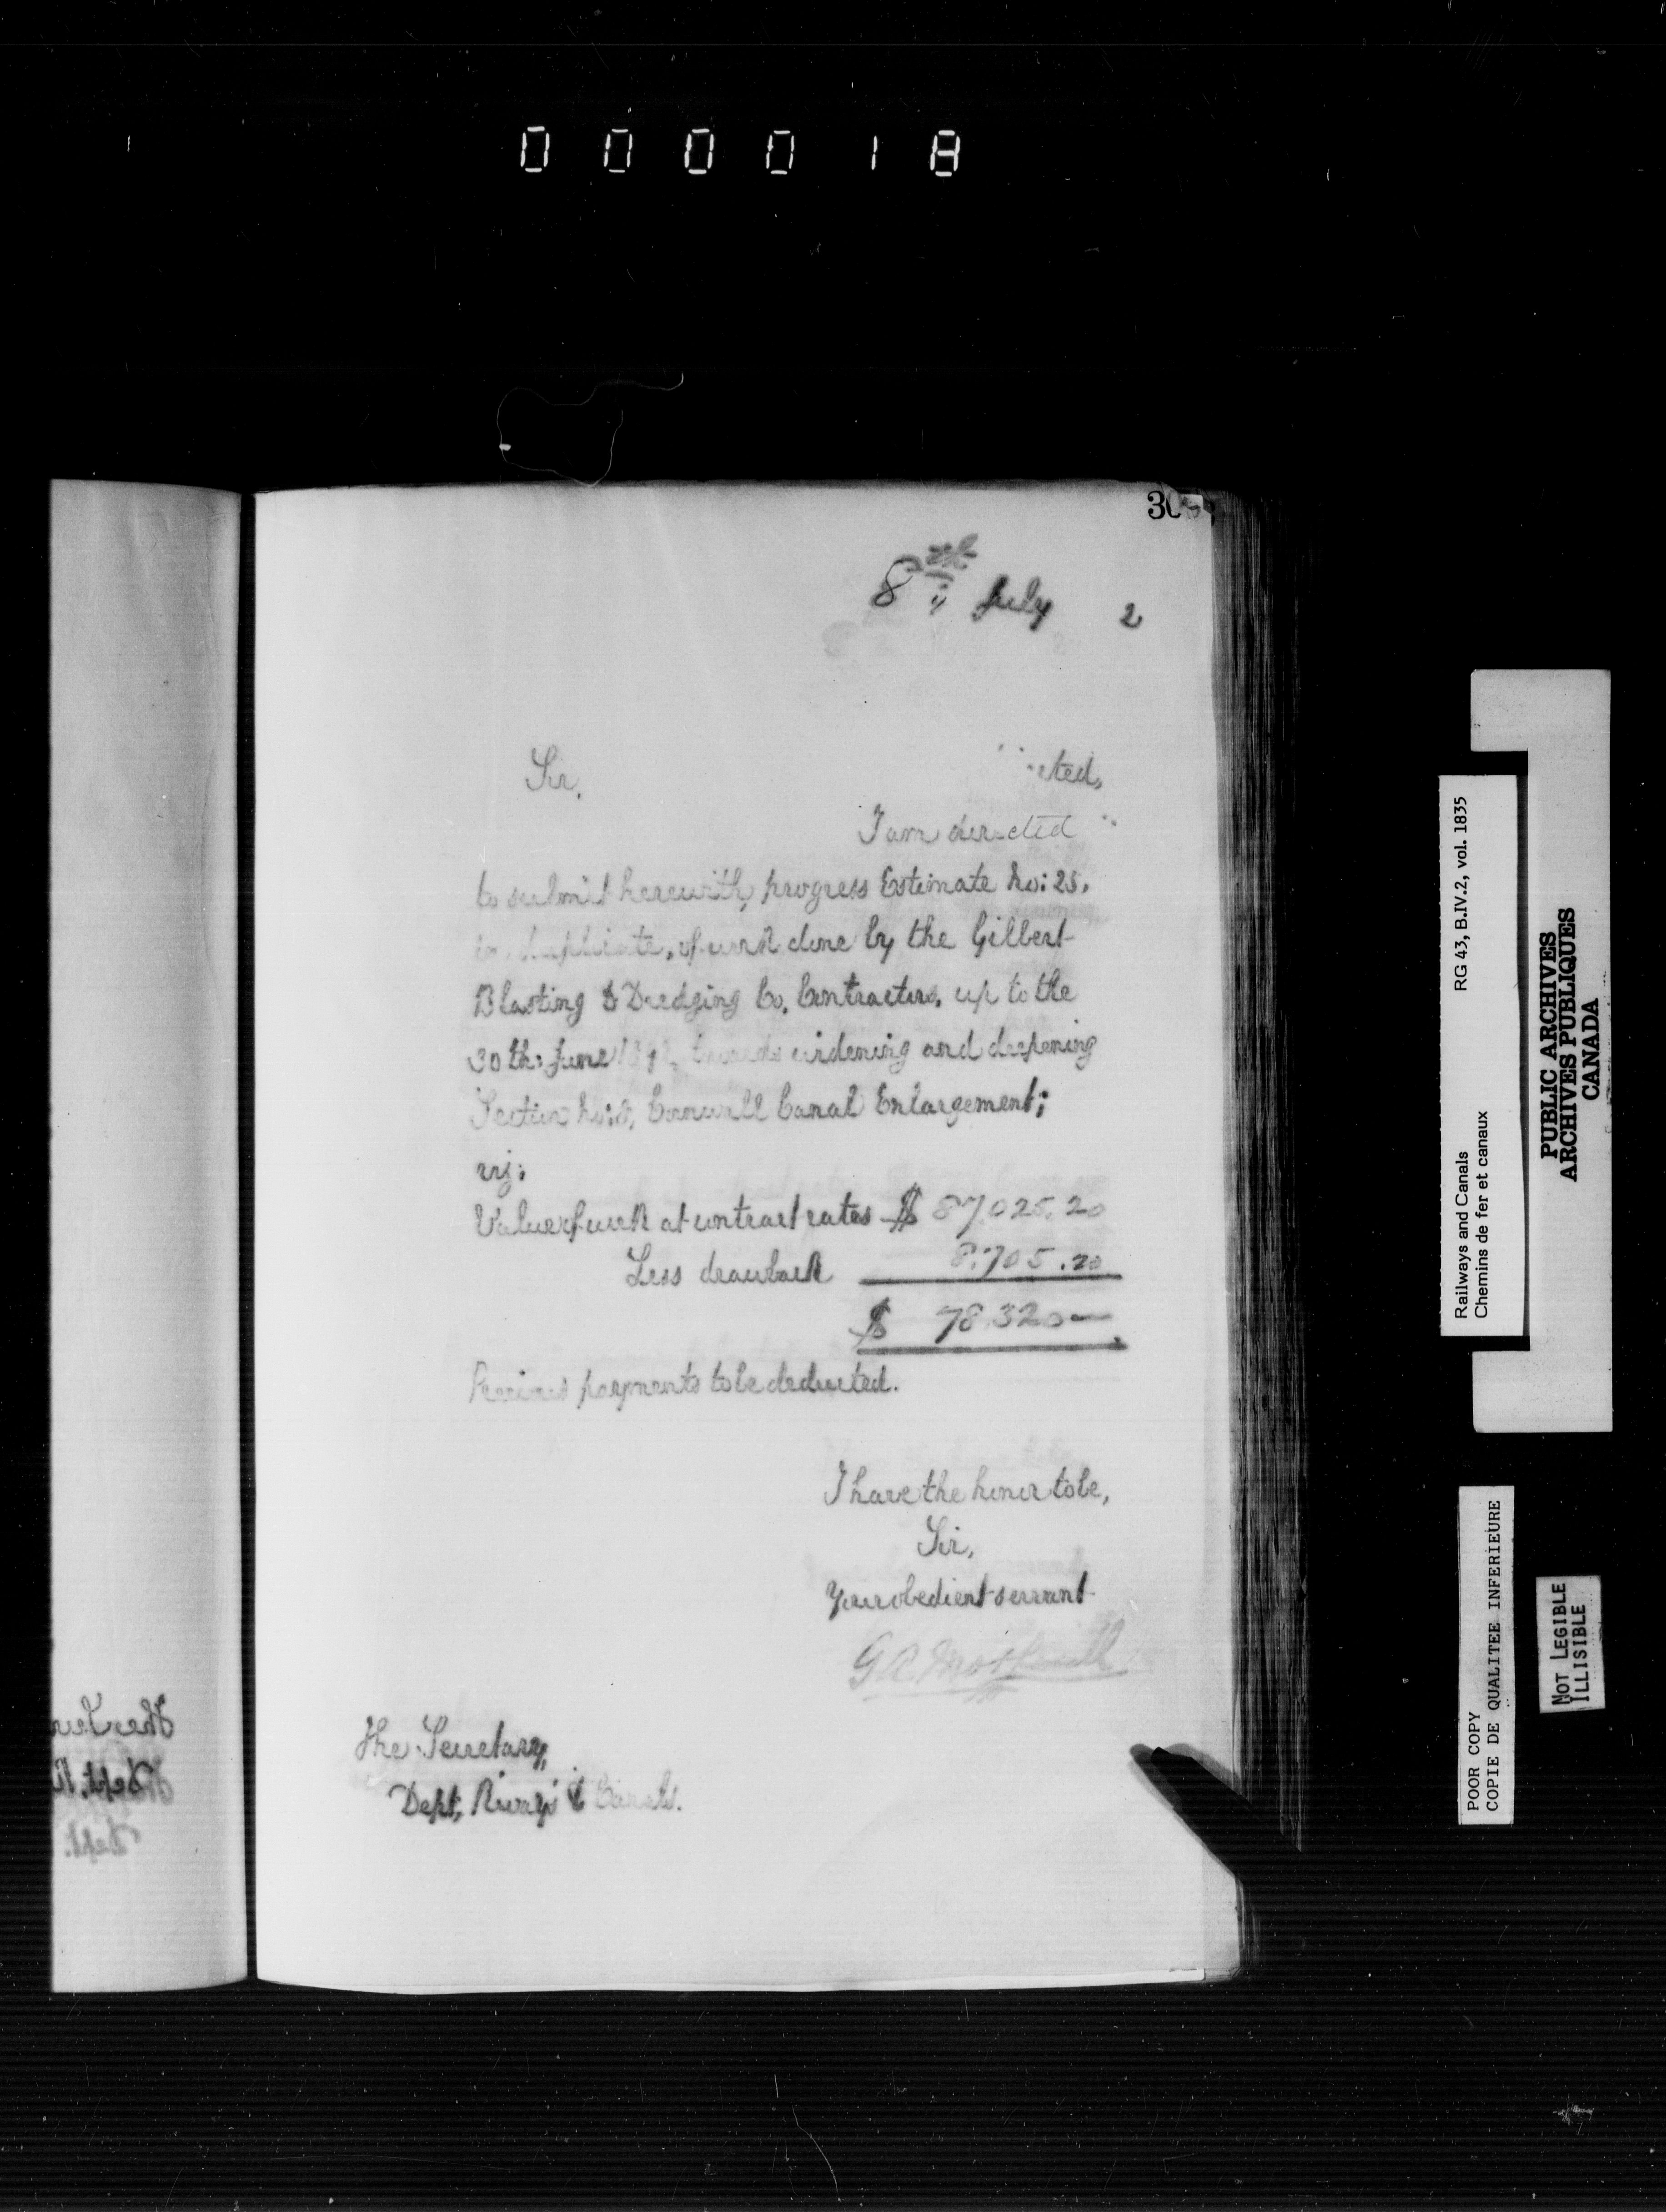 000018
8th July 2
Sir,
cted,
I am directed
to submit herewith, progress Estimate No: 25,
in duplicate, of work done by the Gilbert
Blasting & Dredging Co, Contractors, up to the
30th: June 1892, towards widening and deepening
Section No: 8, Cornwall Canal Enlargement;
viz:
Value of work at contract rates $ 87,025.20
Less drawback 8,705.20
$ 78,320 —
Previous payments to be deducted.
I have the honor to be,
Sir,
Your obedient servant
The Secretary,
Dept, Rways & Canals.
Railways and Canals RG 43, B.IV.2, vol. 1835
Chemins de fer et canaux
PUBLIC ARCHIVES
ARCHIVES PUBLIQUES
CANADA
POOR COPY
COPIE DE QUALITEE INFERIEURE
NOT LEGIBLE
ILLISIBLE